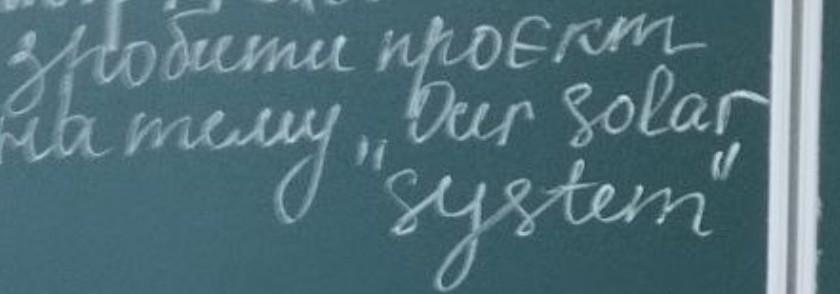 зробити проєкт
на тему „Our solar
system"